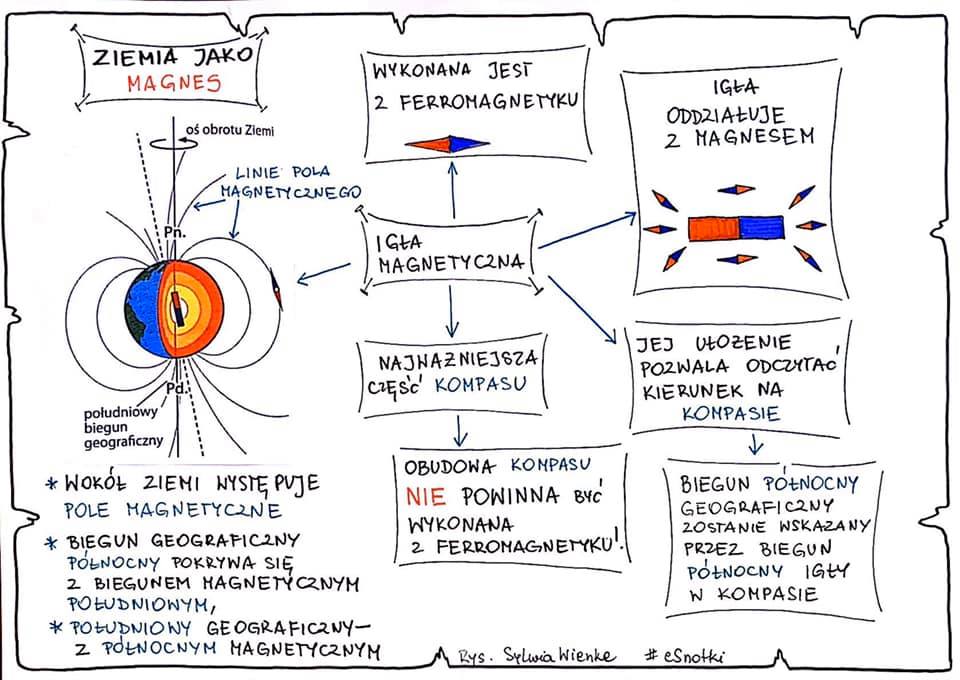 ZIEMIA JAKO
MAGNES
oś obrotu Ziemi
LINIE POLA
MAGNETYCZNEGO
Pn.
Pd.
południowy
biegun
geograficzny
* WOKÓŁ ZIEMI WYSTĘPUJE
POLE MAGNETYCZNE
* BIEGUN GEOGRAFICZNY
PÓŁNOCNY POKRYWA SIĘ
Z BIEGUNEM MAGNETYCZNYM
POŁUDNIOWYM,
* POŁUDNIOWY GEOGRAFICZNY-
Z PÓŁNOCNYM MAGNETYCZNYM
WYKONANA JEST
Z FERROMAGNETYKU
IGŁA
MAGNETYCZNA
NAJWAŻNIEJSZA
CZĘŚĆ KOMPASU
OBUDOWA KOMPASU
NIE POWINNA BYĆ
WYKONANA
Z FERROMAGNETYKU!
IGŁA
ODDZIAŁUJE
Z MAGNESEM
JEJ UŁOŻENIE
POZWALA ODCZYTAĆ
KIERUNEK NA
KOMPASIE
BIEGUN PÓŁNOCNY
GEOGRAFICZNY
ZOSTANIE WSKAZANY
PRZEZ BIEGUN
PÓŁNOCNY IGŁY
W KOMPASIE
Rys. Sylwia Wienke #eSnotki